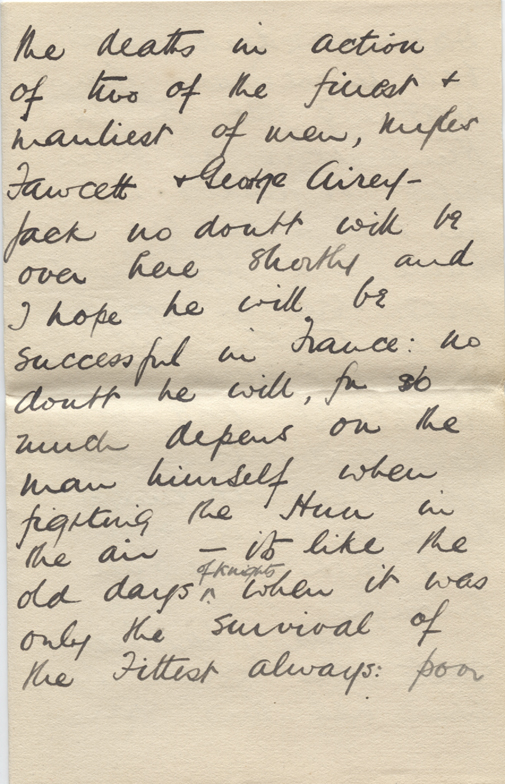 the deaths in action
of two of the finest +
manliest of men,
Fawcett + George Airey -
Jack no doubt will be
over here shortly and
I hope he will be
successful in France: no
doubt he will, for so
much depens on the
man himself when
fighting the Hun in
the air — its like the
of Knights
old days ^ when it was
only the survival of
the Fittest always: poor